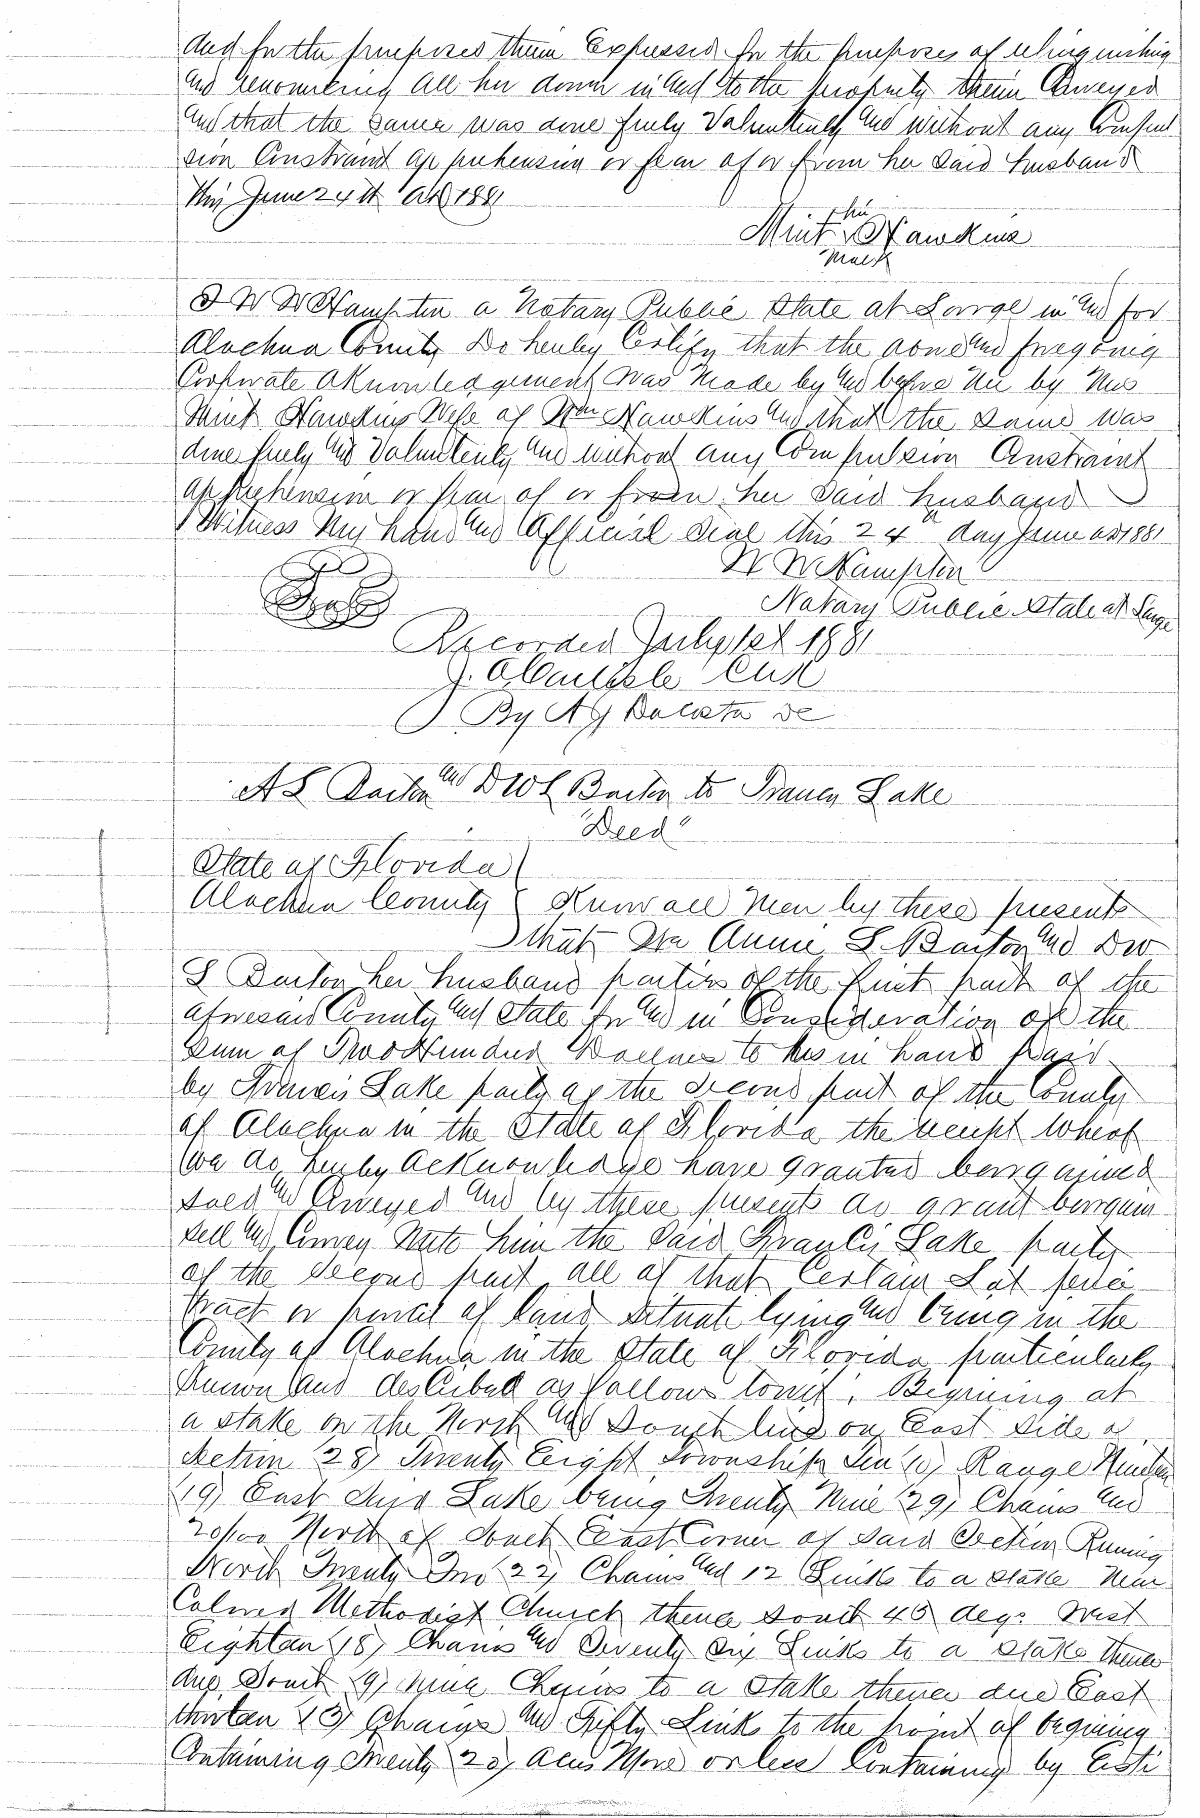 and for the purposes therein Expressed for the purposes of relinquishing
and renouncing all her dower in and to the property therein Conveyed
and that the same was done freely Voluntarily and without any Compul
sion Constraint apprehension or fear of or from her said husband
this June 24th AD 1881
her
Mint X Hawkins
mark
I W W Hampton a Notary Public State at Large in and for
Alachua County Do hereby Certify that the above and foregoing
Corporate aknowledgement was made by and before me by Mrs
Mint Hawkins Wife of Wm Hawkins and that the same was
done freely and Voluntarily and without any Compulsion Constraint
apprehension or fear of or from her said husband
Witness my hand and Official Seal this 24th day June AD 1881
W W Hampton
Seal
Notary Public State at Large
Recorded July 1st 1881
J. A Carlisle Clerk
By A J Dacosta DC
A L Barton and D W L Barton to Francis Lake
"Deed"
State of Florida
Alachua County Know all Men by these presents
that We Annie L. Barton and D W
L Barton her husband parties of the first part of the
aforesaid County and State for and in Consideration of the
Sum of Two Hundred Dollars to us in hand paid
by Francis Lake party of the second part of the County
of Alachua in the State of Florida the receipt whereof
we do hereby acknowledge have granted bargained
sold and Conveyed and by these presents do grant bargain
sell and Convey unto him the said Francis Lake party
of the second part all of that Certain Lot peice
tract or parcel of land situate lying and being in the
County of Alachua in the State of Florida particularly
known and described as follows towit: Begining at
a stake on the North and South line on East side of
Section (28) Twenty Eight Township Ten (10) Range Nineteen
(19) East said Lake being Twenty Nine (29) Chains and
20/100 North of South East Corner of said Section Runing
North Twenty Two (22) Chains and 12 Links to a stake Near
Colored Methodist Church thence South 45 degs West
Eighteen (18) Chains and Seventy Six Links to a stake thence
due South (9) Nine Chains to a stake thence due East
thirteen (13) Chains and Fifty Link to the point of begining
Containing Twenty (20) acres More or less Containing by Esti